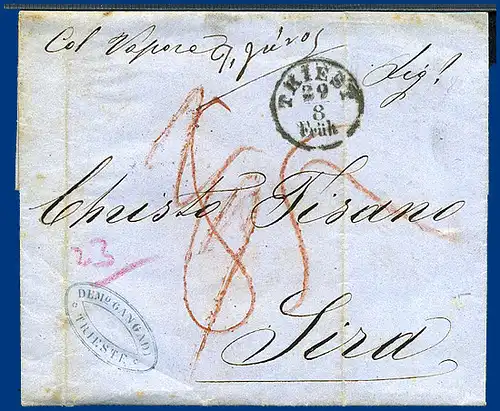 Col Vapore
Sigr
TRIEST
29
8
Früh
Christo Fisano
23
Sira
DEMO. GANGADI
TRIESTE